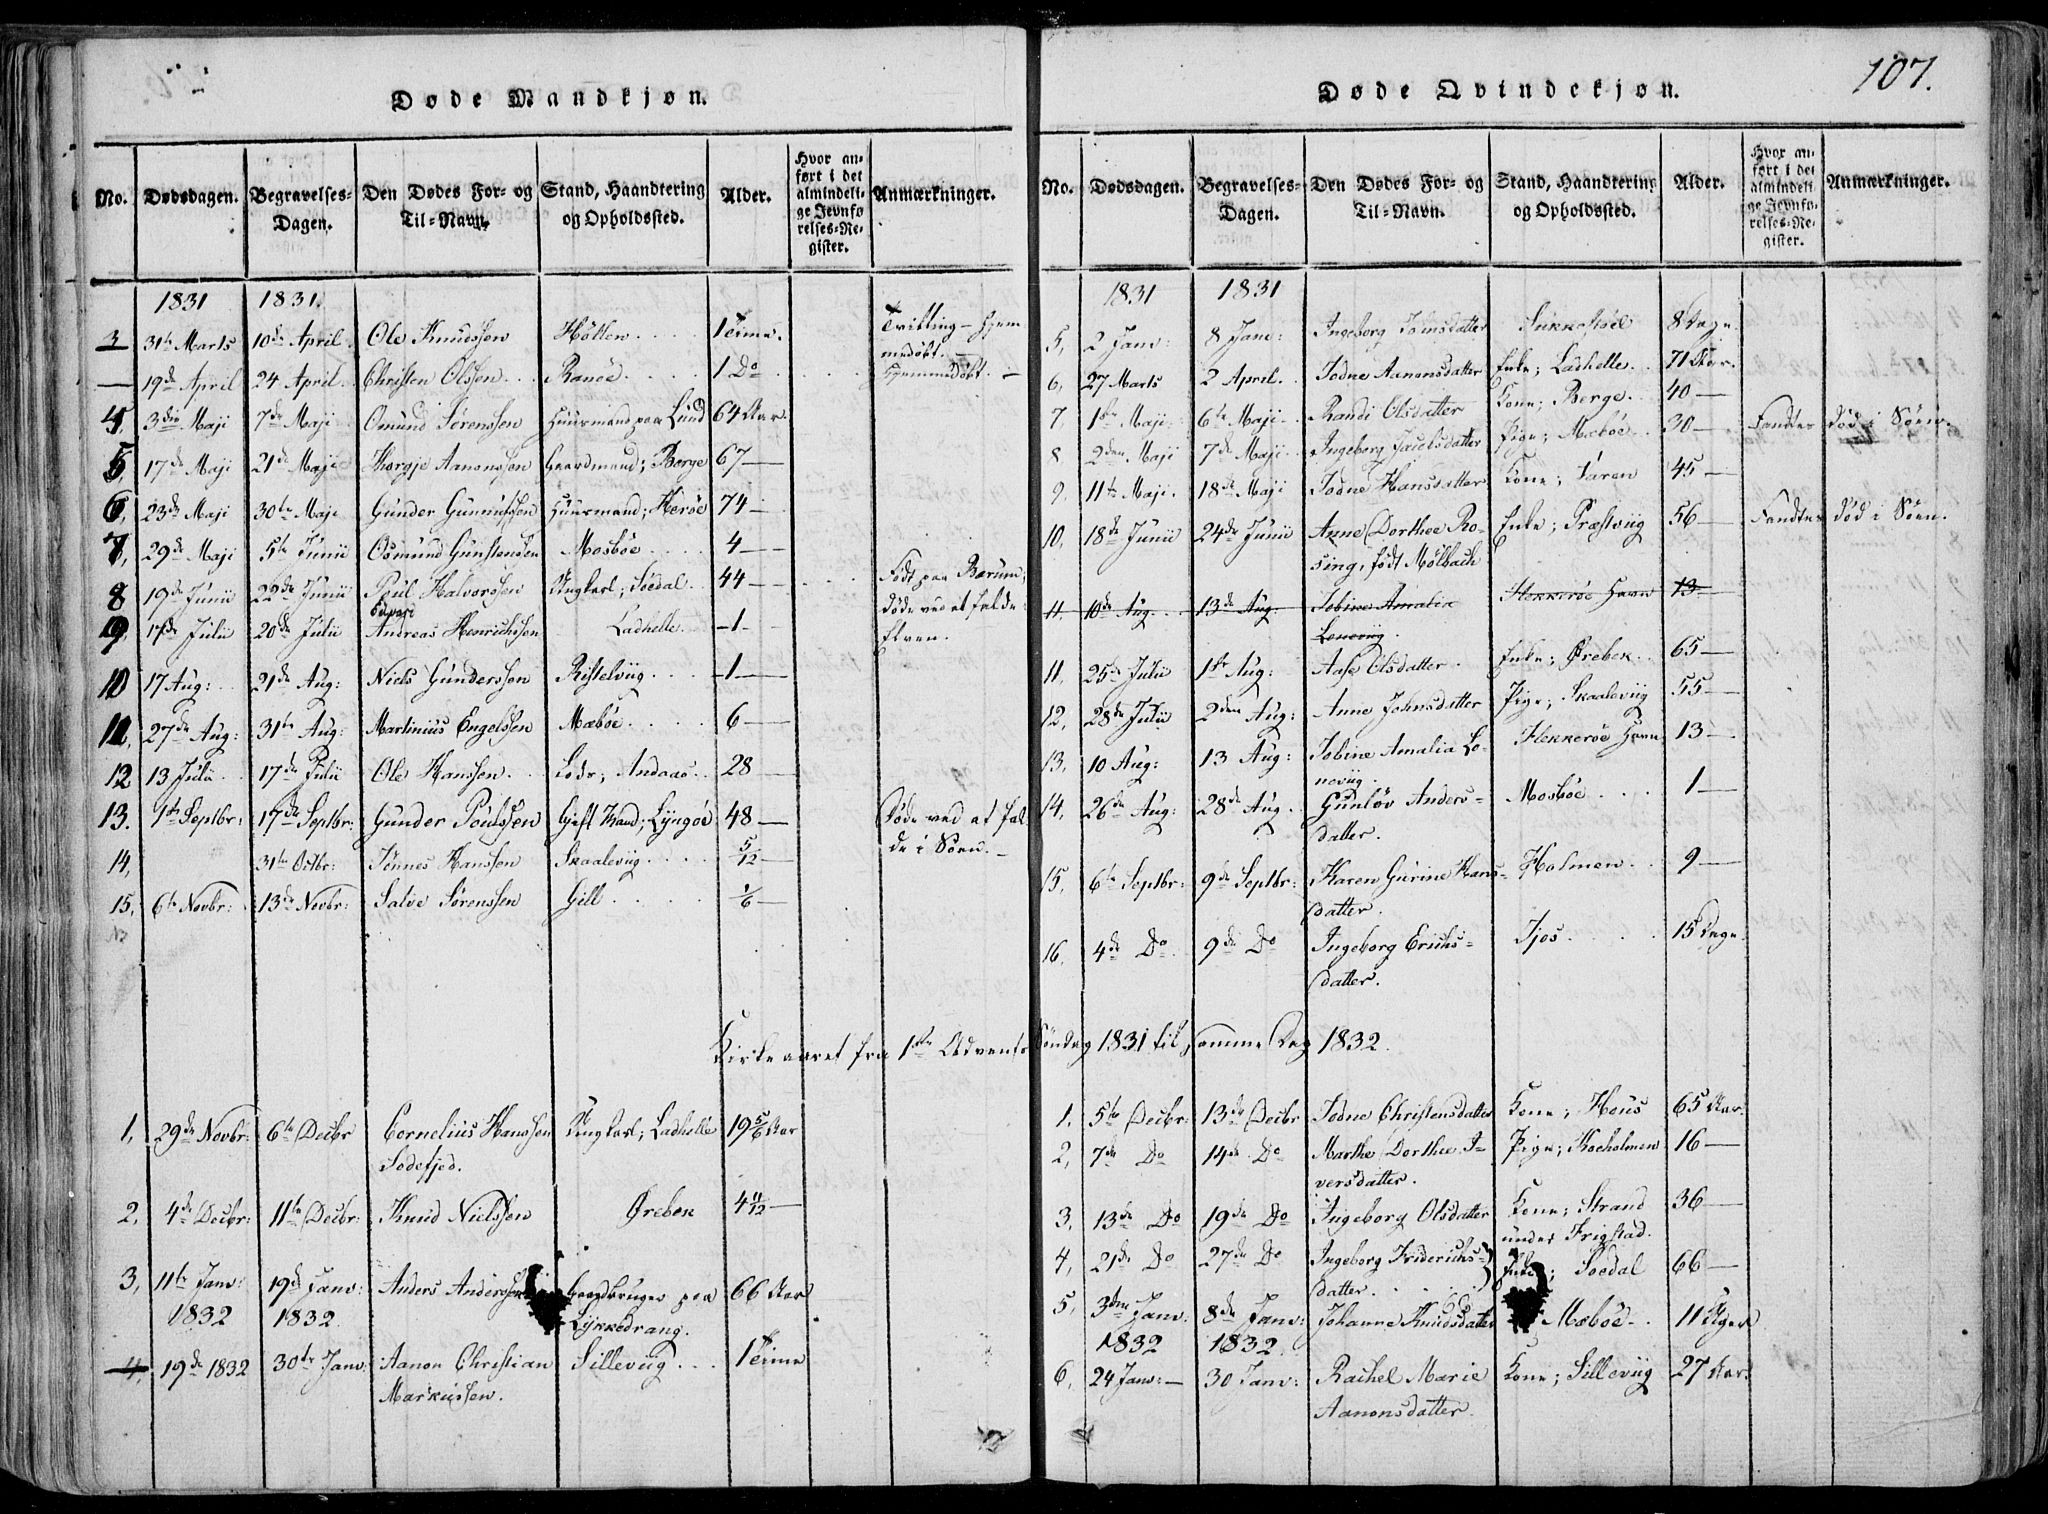 107.
Døde Mandkjøn.
No. Dødsdagen. Begravelses-Dagen. Den Dødes For- og Til-Navn. Stand, Haandtering og Opholdssted. Alder. Hvor anført i det almindelige Jevnførelses-Register. Anmærkninger.
1831 1831.
3 31te Marts 10de April Ole Knudssen Hølten 1 Time. Tvilling – Hjemmedøbt. –
— 19de April 24 April Christen Olssen Ranøe 1 Do Hjemmedøbt. –
4, 3die Maji 7de Maji Omund Sørenssen Huusmand paa Lund 64 Aar.
5, 17de Maji 21de Maji Thorgje Aanonssen Gaardmand; Berge 67 —
6, 23de Maji 30te Maji Gunder Gunnufssen Huusmand; Herøe 74 —
7, 29de Maji 5te Junii Osmund Gunstensen Mosbøe 4 —
8 19de Junii 22de Junii Poul Halvorssen Ungkarl; Søedal 44 — Født paa Bærum; døde ved et Fald i Elven.
9, 17de Julii 20de Julii Edvard Andreas Henrichssen Ladhelle. — 1 —
10 17 Aug: 21de Aug: Niels Gunderssen Ristelviig — 1 —
11, 27de Aug: 31te Aug: Martinius Engelssen Mæbøe 6 —
12 13 Julii 17de Julii Ole Hanssen Lods; Andaas 28 —
13. 1ste Septbr: 17de Septbr: Gunder Poulssen Gift Mand; Lyngøe 48 — Døde ved et Fald i Søen. –
14, 31te Octbr: Tønnes Hanssen Skaaleviig 5/12 —
15, 6te Novbr: 13de Novbr: Salve Sørenssen Gill 1/6 —
Kirkeaaret fra 1ste Advents Søndag 1831 til samme Dag 1832.
1, 29de Novbr: 6te Decbr Cornelius Hanssen Sodefjed. Ungkarl; Ladhelle 19 5/6 Aar
2, 4de Decbr: 11te Decbr: Knud Nielssen Ørebek 4 11/12 —
3, 11te Janv: 1832 19de Janv: 1832. Anders Anderssen Gaardbruger paa Lykkedrang. 66 Aar
4, 19de 1832 30te Janv: Aanon Christian Markussen. Silleviig 1 Time
Døde Qvindekjøn.
No. Dødsdagen. Begravelses-Dagen. Den Dødes For- og Til-Navn. Stand, Haandtering og Opholdssted. Alder. Hvor anført i det almindelige Jevnførelses-Register. Anmærkninger.
1831 1831
5, 2 Janv: 8 Janv: Ingeborg Tønnsdatter 8 Dage.
6, 27 Marts 2 April. Todne Aanonsdatter Enke; Ladhelle 71 Aar.
7, 1ste Maji 6te Maji Randi Olsdatter Kone; Berge 40 —
8 2den Maji 7de Maji Ingeborg Jacelsdatter Pige; Mæbøe 30 — Fandtes død i Søen.
9, 11te Maji. 18de Maji Todne Hansdatter Kone; Taren 45 —
10, 18de Junii 24de Junii Anne Dorthee Rosing, født Mølbach Enke; Præstviig 56 — Fandtes død i Søen.
11, 10de Aug 13de Aug. Tobine Amalia Loneviig. Flekkerøe Havn 13
11, 25te Julii 1ste Aug: Aase Olsdatter Enke; Ørebek 65 —
12, 28de Julii 2den Aug: Anne Johnsdatter Pige; Skaaleviig 55 —
13, 10 Aug: 13 Aug: Tobine Amalia Loneviig. Flekkerøe Havn 13 —
14, 26de Aug: 28de Aug. Gunløv Andersdatter. Mosbøe 1 —
15, 6te Septbr: 9de Septbr: Karen Gurine Hansdatter. Holmen 9 —
16, 4de Do 9de Do Ingeborg Erichsdatter. Tjos 15 Dage.
1, 5te Decbr: 13de Decbr Todne Christensdatter Kone; Høus 65 Aar.
2, 7de Do 14de Do Marthe Dorthee Iversdatter. Pige; Kocholmen 16 —
3, 13de Do 19de Do Ingeborg Olsdatter Kone; Strand under Frigstad. 36 —
4, 21de Do 27de Do Ingeborg Friderichsdatter. Enke; Søedal 66 —
5, 3die Janv: 1832 8de Janv: 1832. Johanne Knudsdatter Mæbøe 11 Uger
6, 24 Janv: 30 Janv: Rachel Marie Aanonsdatter. Kone; Silleviig 27 Aar.